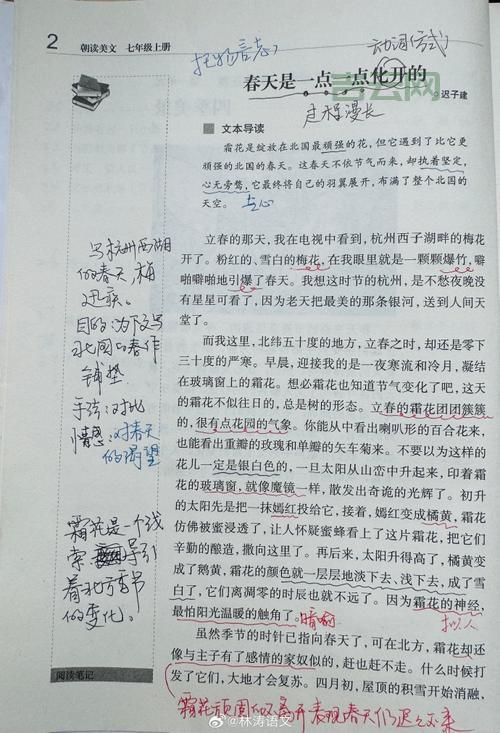 2 朝读美文 七年级上册
动词(式)
春天是一点一点化开的
◎迟子建
过程漫长
■ 文本导读
霜花是绽放在北国最顽强的花，但它遇到了比它更
顽强的北国的春天。这春天不依节气而来，却执着坚定，
心无旁骛，它最终将自己的羽翼展开，布满了整个北国的
天空。
立春的那天，我在电视中看到，杭州西子湖畔的梅花
开了。粉红的、雪白的梅花，在我眼里就是一颗颗爆竹，噼
啪噼啪地引爆了春天。我想这时节的杭州，是不愁夜晚没
有星星可看了，因为老天把最美的那条银河，送到人间天
堂了。
而我这里，北纬五十度的地方，立春之时，却还是零下
三十度的严寒。早晨，迎接我的是一夜寒流和冷月，凝结
在玻璃窗上的霜花。想必霜花也知道节气变化了吧，这天
的霜花不似往日的，总是树的形态。立春的霜花团团簇簇
的，很有点花园的气象。你能从中看出喇叭形的百合花来，
也能看出重瓣的玫瑰和单瓣的矢车菊来。不要以为这样的
花儿一定是银白色的，一旦太阳从山峦中升起来，印着霜
花的玻璃窗，就像魔镜一样，散发出奇诡的光辉了。初升
的太阳先是把一抹嫣红投给它，接着，嫣红变成橘黄，霜花
仿佛被蜜浸透了，让人怀疑蜜蜂看上了这片霜花，把它们
辛勤的酿造，撒向这里了。再后来，太阳升得高了，橘黄变
成了鹅黄，霜花的颜色就一层层地淡下去、浅下去，成了雪
白了，它们离凋零的时辰也就不远了。因为霜花的神经，
最怕阳光温暖的触角了。
拟人
虽然季节的时针已指向春天了，可在北方，霜花却还
像与主子有了感情的家奴似的，赶也赶不走。什么时候打
发了它们，大地才会复苏。四月初，屋顶的积雪开始消融，
写杭州西湖
的春天，梅
目的：为下文写
北国的春作
铺垫
手法：对比
情感：对春天
的渴望
霜花是一个线
索 导引
着北方季节
的变化。
阅读笔记
霜花顽固的不离开表现春天仍迟迟不来
@林涛语文